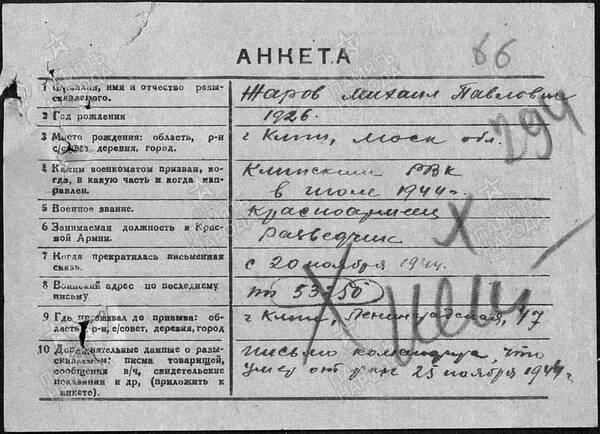 АНКЕТА 66
1 Фамилия, имя и отчество разыскиваемого. Жаров Михаил Павлович
2 Год рождения 1926.
3 Место рождения: область, р-н с/совет, деревня, город. г Клин, Моск обл.
294
4 Каким военкоматом призван, когда, в какую часть и когда направлен. Клинским РВК в июле 1944 г.
5 Военное звание. Красноармеец
6 Занимаемая должность в Красной Армии. Разведчик
7 Когда прекратилась письменная связь. с 20 ноября 1944.
8 Воинский адрес по последнему письму пп 53750
9 Где проживал до призыва: область, р-н, с/совет, деревня, город г Клин, Ленинградская, 47
10 Дополнительные данные о разыскиваемом: письма товарищей, сообщения в/ч, свидетельские показания и др, (приложить к анкете). письмо командира, что умер от ран 25 ноября 1944 г